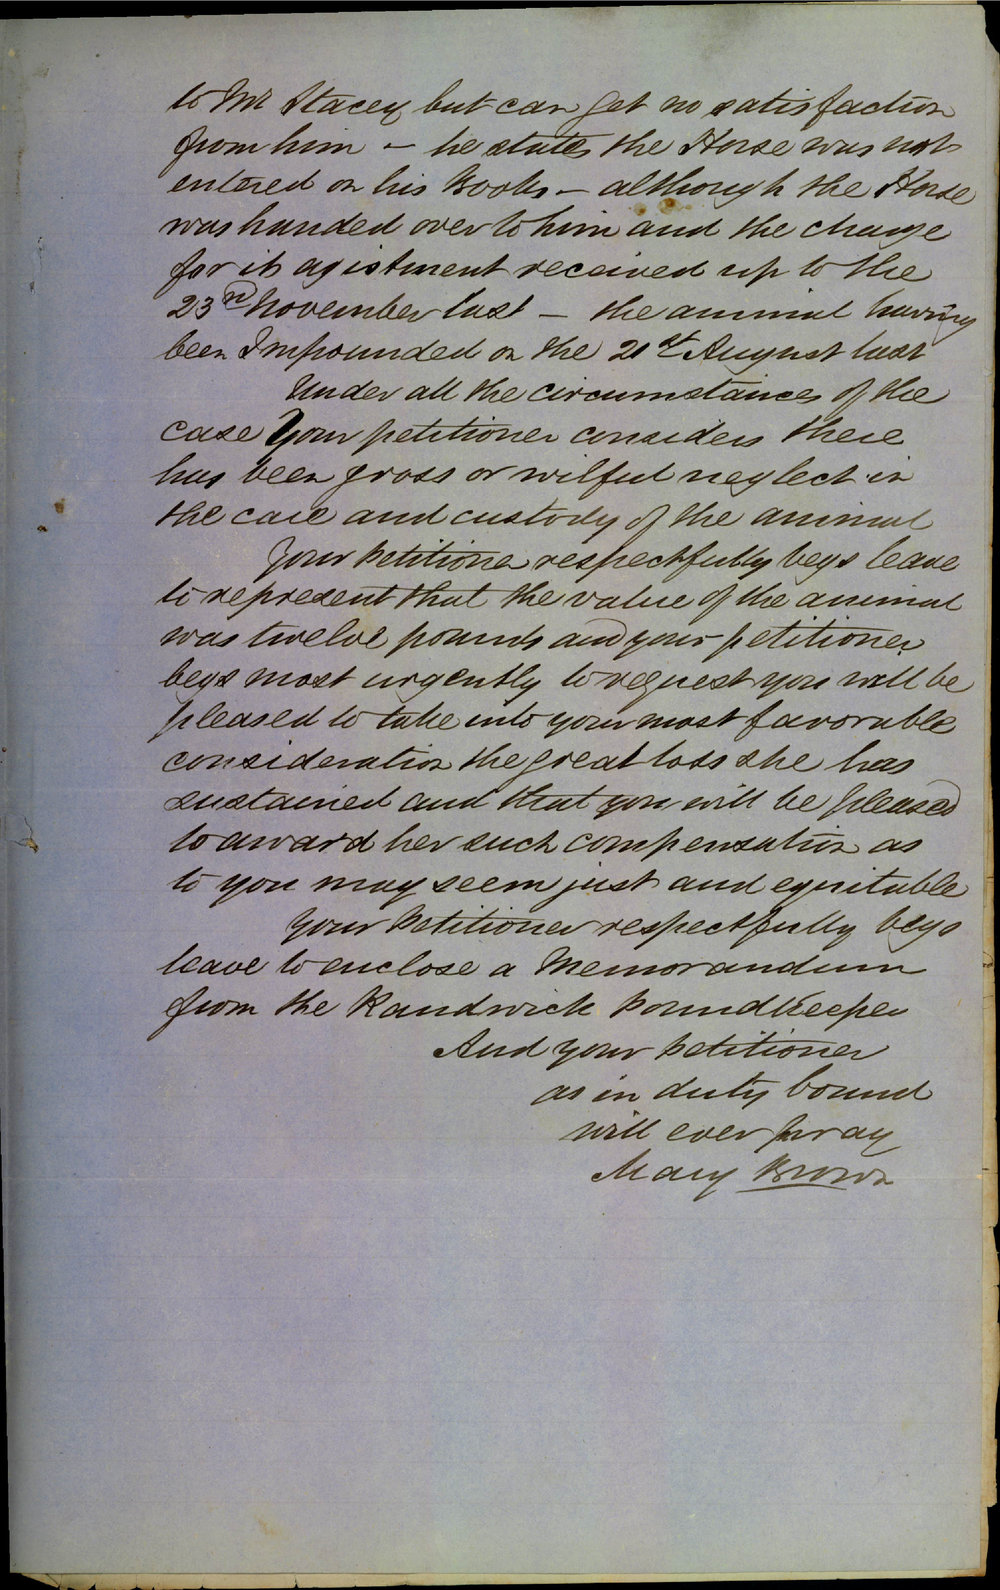 to Mr Stacey but can get no satisfaction
from him – he states the Horse was not
entered on his Books – although the Horse
was handed over to him and the charge
for its agistment received up to the
23rd November last – the animal having
been Impounded on the 21st August last
Under all the circumstances of the
case Your petitioner considers there
has been gross or wilful neglect in
the care and custody of the animal
Your Petitioner respectfully begs leave
to represent that the value of the animal
was twelve pounds and your petitioner
begs most urgently to request you will be
pleased to take into your most favorable
consideration the great loss she has
sustained and that you will be pleased
to award her such compensation as
to you may seem just and equitable
Your Petitioner respectfully begs
leave to enclose a Memorandum
from the Randwick Poundkeeper
And your Petitioner
as in duty bound
will ever pray
Mary Brown